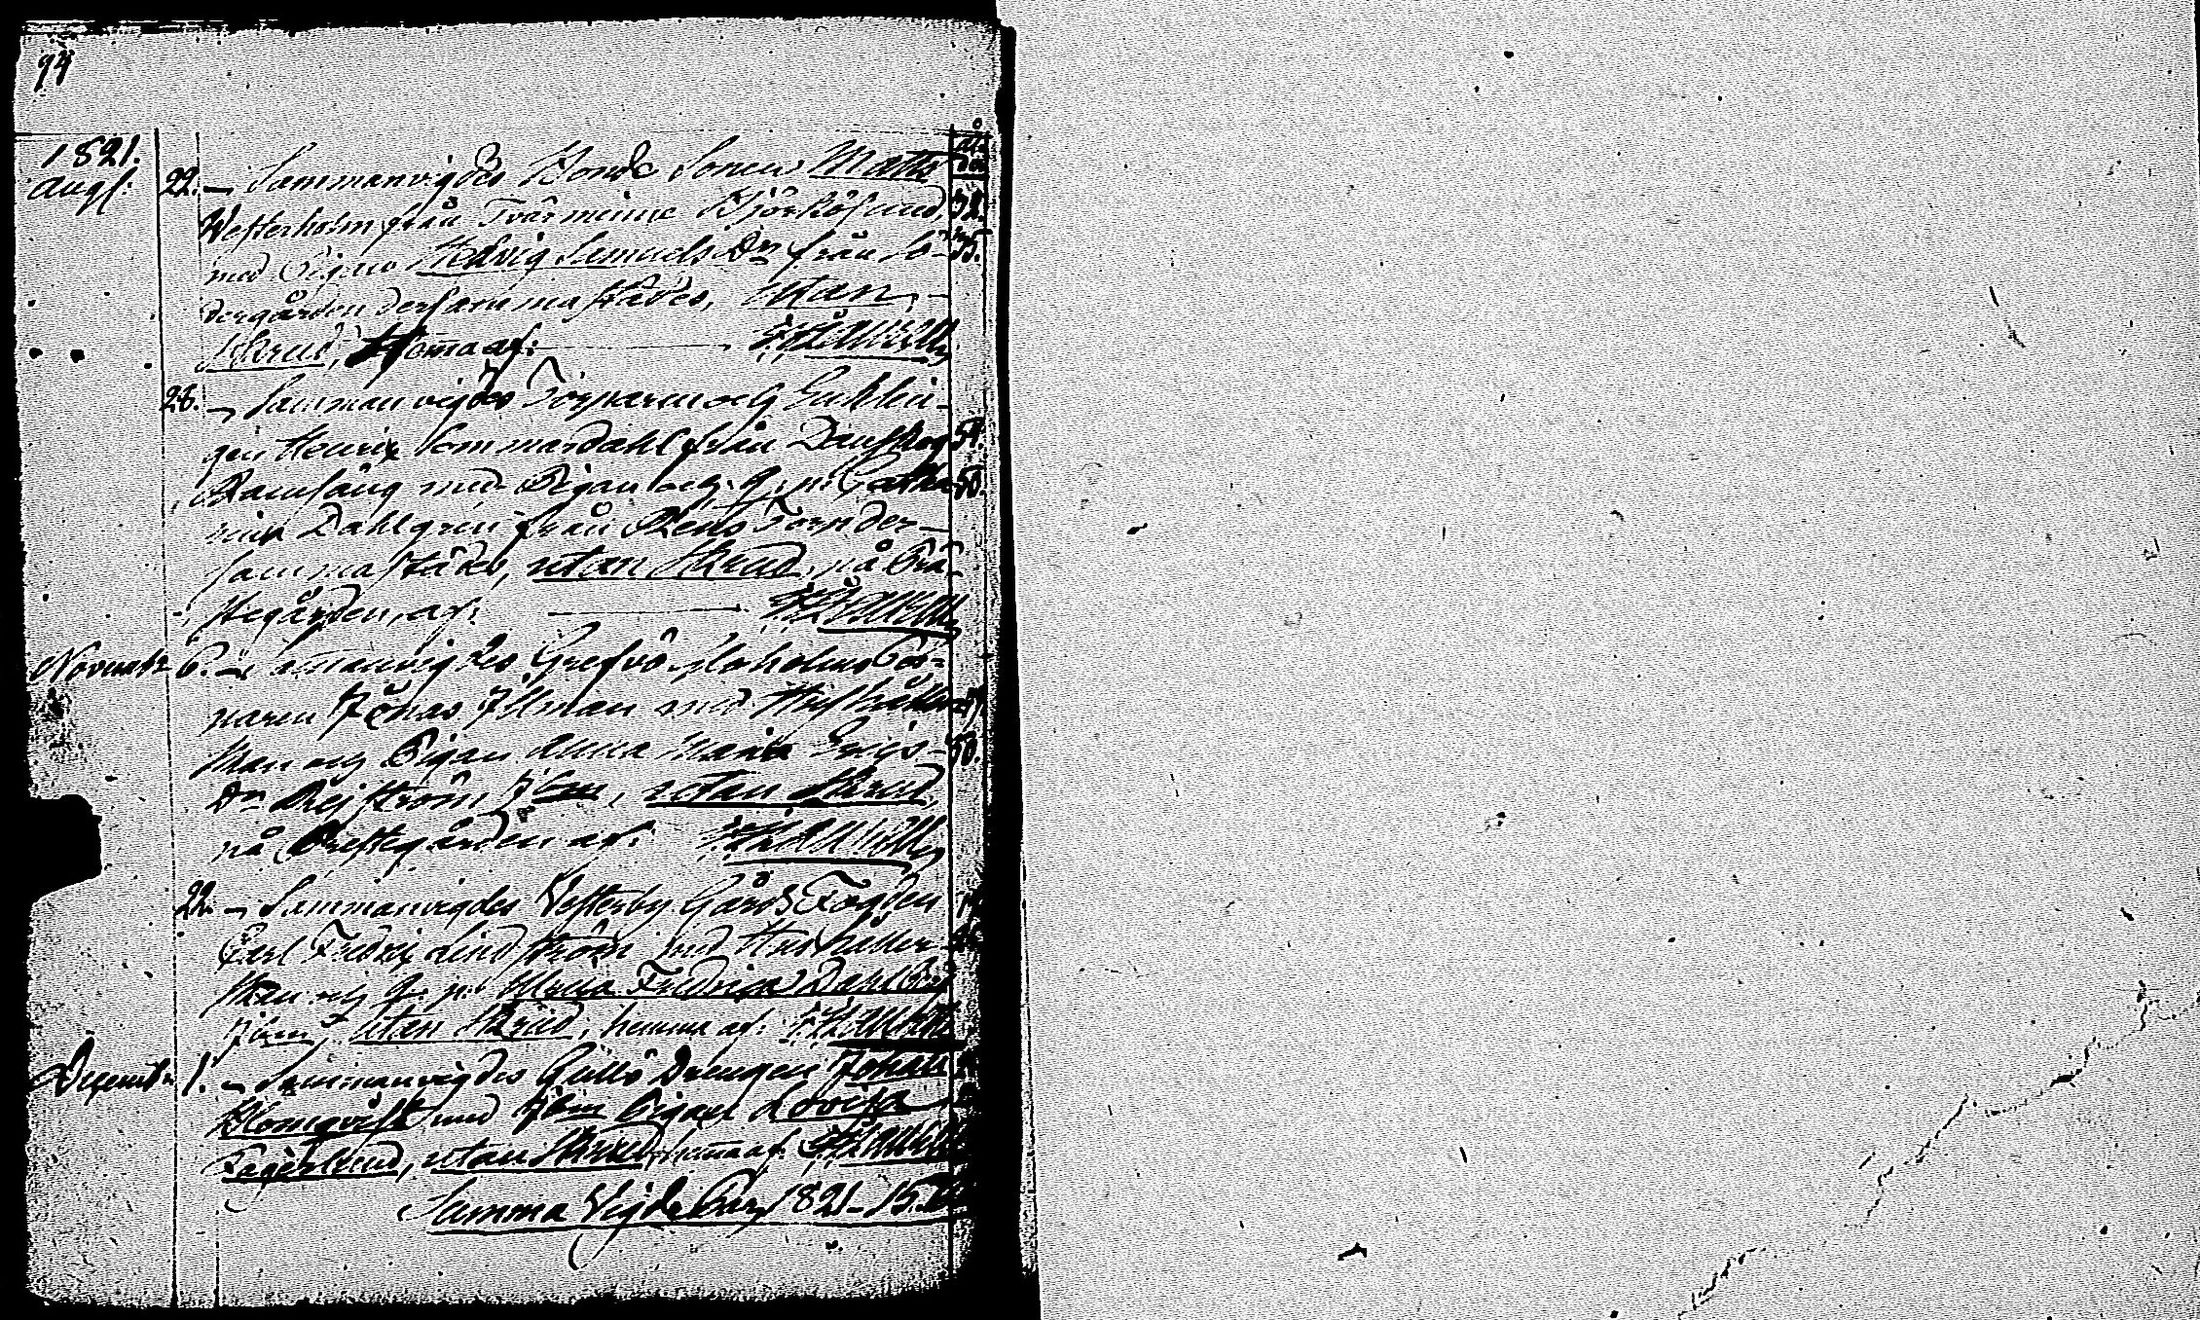 94
1821.
Augs: 22. Sammanvigdes Bonde Sonen Matts
Westerholm från Tvärminne Björkösund 32.
med Pigan Hedvig Samuels Dr från Sö- 35.
dergården dersammastädes, utan
Skrud, Hema af:
28. Sammanvigdes Torparen och Enklin-
gen Henrix Sommardahl från Danskog 54.
Ramsäng med Pigan och Q. p. Catha- 50.
rina Dahlgren från Torp der-
sammastädes, utan Skrud, på Prä-
stegården, af:
Novembr 6. Sammanvigdes
naren Jonas Illman med Hushåller-
skan och Pigan Anna Maria Erics- 50.
Dr ibm, utan Skrud,
på Prestegården af:
22. Sammanvigdes Vesterby Gårds Fogden
Carl Fredric Lindström med Hushåller-
skan och Q. p. Maria Fredrica Dahlberg
ibm, utan Skrud, hemma af:
Decembr 1. Sammanvigdes Gullö Drengen Johan
Blomqvist med ibm Pigan Lovisa
Fagerlund, utan Skrud, hema af:
Summa Vigde Par 1821 - 15.